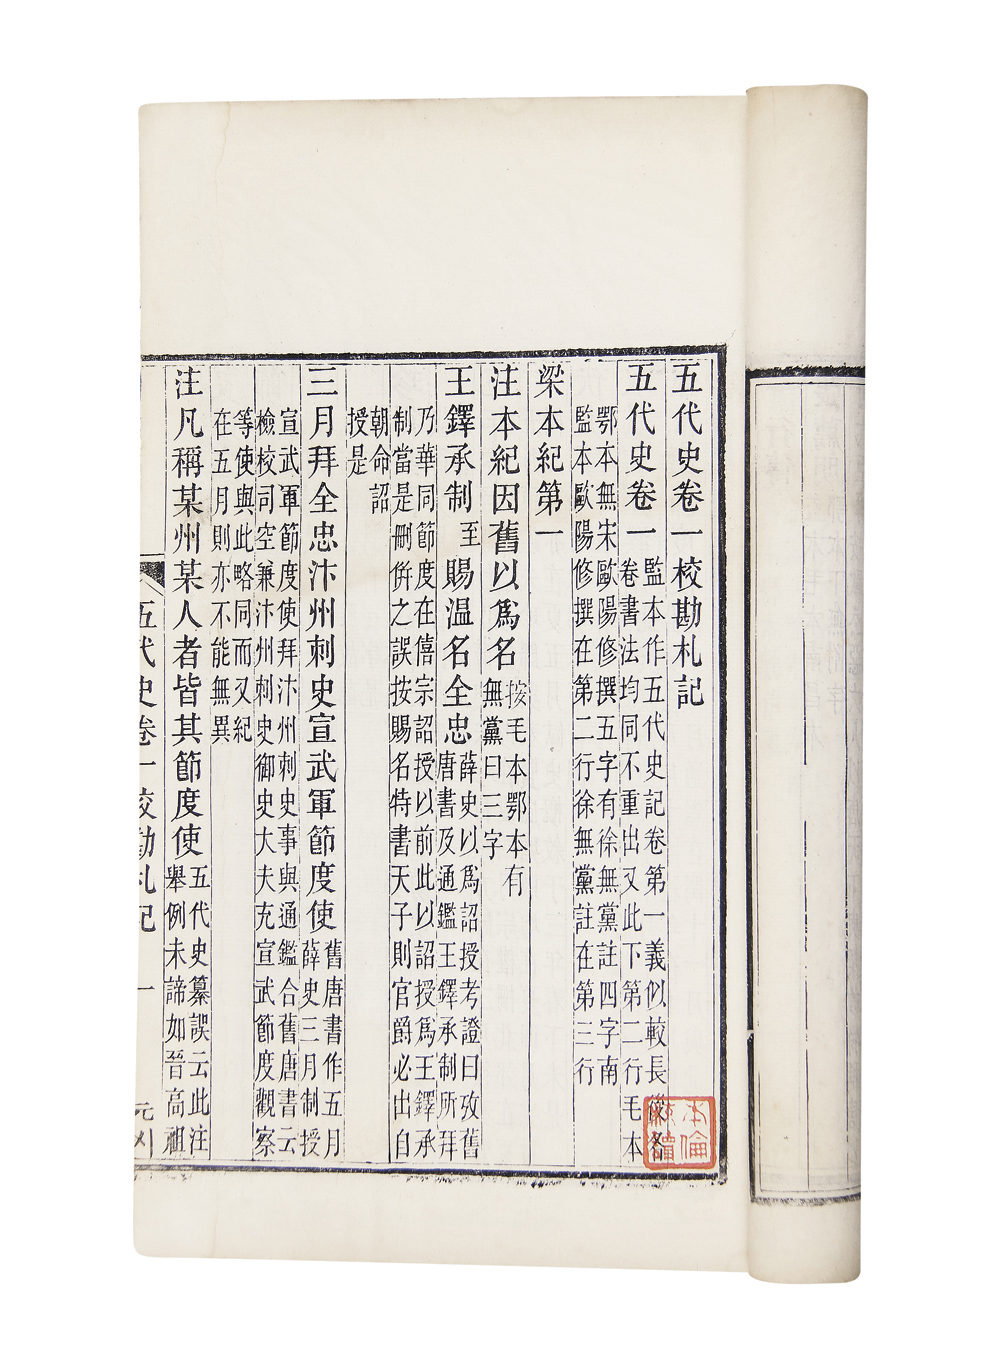 五代史卷一校勘札記
五代史卷一 監本作五代史記卷第一義似較長後各
卷書法均同不重出又此下第二行毛本
鄂本無宋歐陽修撰五字有徐無黨註四字南
監本歐陽修撰在第二行徐無黨註在第三行
梁本紀第一
注本紀因舊以爲名 按毛本鄂本有
無黨曰三字
王鐸承制至賜温名全忠 薛史以爲詔授考證曰攷舊
唐書及通鑑王鐸承制所拜
乃華同節度在僖宗詔授以前此以詔授爲王鐸承
制當是刪併之誤按賜名特書天子則官爵必出自
朝命詔
授是
三月拜全忠汴州刺史宣武軍節度使 舊唐書作五月
薛史三月制授
宣武軍節度使拜汴州刺史事與通鑑合舊唐書云
檢校司空兼汴州刺史御史大夫充宣武節度觀察
等使與此略同而又紀
在五月則亦不能無異
注凡稱某州某人者皆其節度使 五代史纂誤云此注
舉例未諦如晉高祖
五代史卷一校勘札記 一